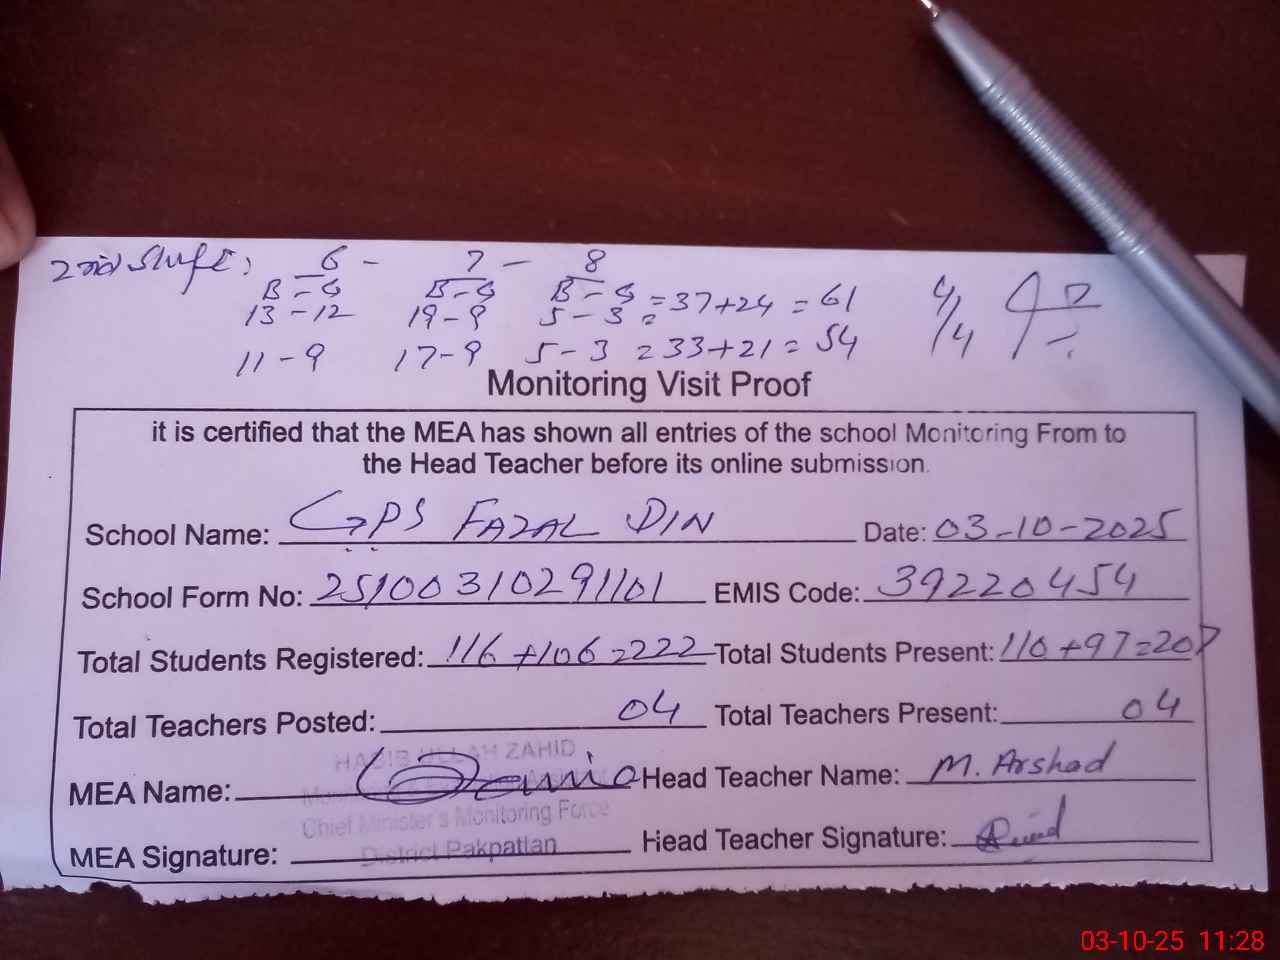 2nd Shift: 6 - 7 - 8
B-G B-G B-G = 37+24 = 61
13-12 19-9 5-3 =
11-9 17-9 5-3 = 33+21 = 54
4/4
Monitoring Visit Proof
it is certified that the MEA has shown all entries of the school Monitoring From to
the Head Teacher before its online submission.
School Name: GPS FAZAL DIN Date: 03-10-2025
School Form No: 25100310291101 EMIS Code: 39220454
Total Students Registered: 116+106=222 Total Students Present: 110+97=207
Total Teachers Posted: 04 Total Teachers Present: 04
HABIB ULLAH ZAHID
MEA Name: Head Teacher Name: M. Arshad
Chief Minister's Monitoring Force
MEA Signature: District Pakpattan Head Teacher Signature:
03-10-25 11:28